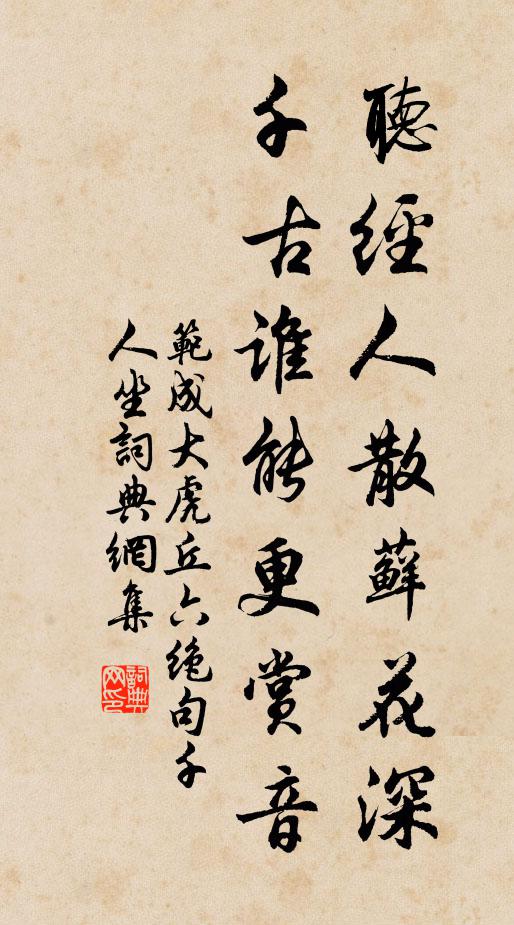 聽經人散蘚花深
千古誰能更賞音
範成大虎丘六絕句千
人坐詞典網集
詞典
网印